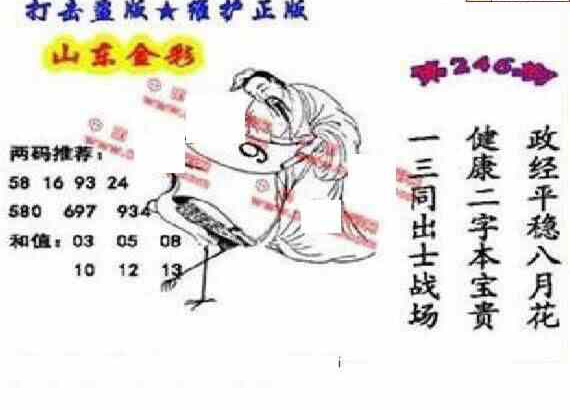 打击盗版★维护正版
山东金彩
第246期
两码推荐：
58 16 93 24
580 697 934
和值：03 05 08
10 12 13
9
政经平稳八月花
健康二字本宝贵
一三同出士战场